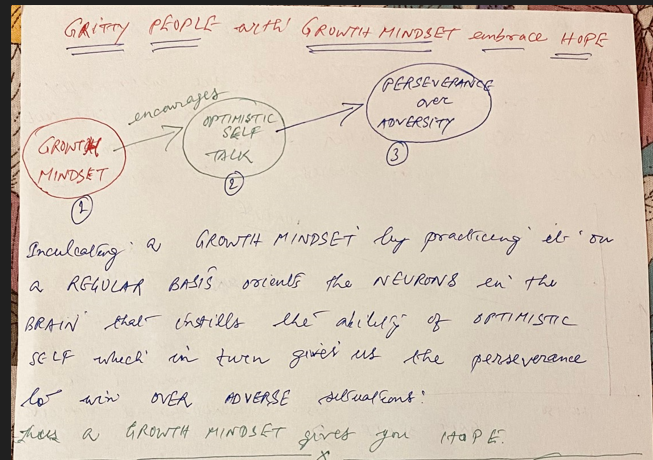 GRITTY PEOPLE with GROWTH MINDSET embrace HOPE
encourages
GROWTH
MINDSET
1
OPTIMISTIC
SELF
TALK
2
PERSEVERANCE
over
ADVERSITY
3
Inculcating a GROWTH MINDSET by practicing it on
a REGULAR BASIS orients the NEURONS in the
BRAIN that instills the ability of OPTIMISTIC
SELF which in turn gives us the perseverance
to win OVER ADVERSE situations.
Thus a GROWTH MINDSET gives you HOPE.
x